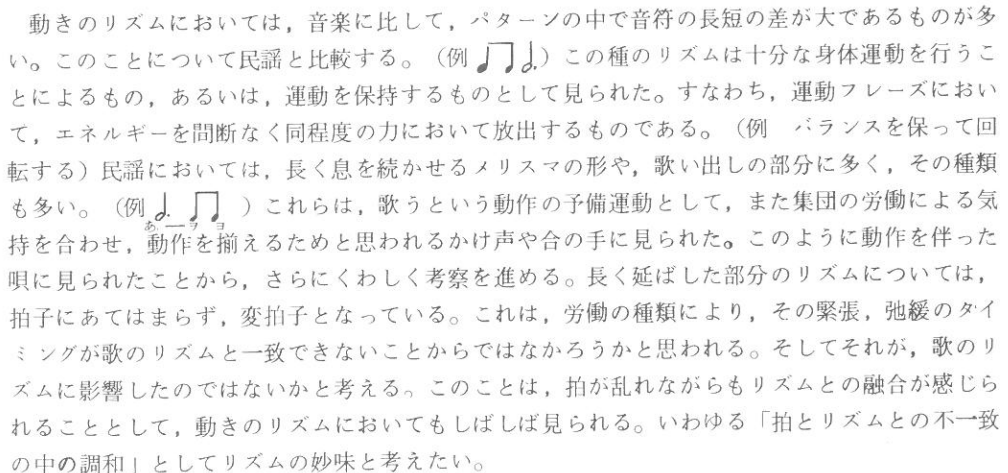 動きのリズムにおいては，音楽に比して，パターンの中で音符の長短の差が大であるものが多
い。このことについて民謡と比較する。（例 ♩♫𝅗𝅥.）この種のリズムは十分な身体運動を行うこ
とによるもの，あるいは，運動を保持するものとして見られた。すなわち，運動フレーズにおい
て，エネルギーを間断なく同程度の力において放出するものである。（例　バランスを保って回
転する）民謡においては，長く息を続かせるメリスマの形や，歌い出しの部分に多く，その種類
も多い。（例 𝅗𝅥. ♫ ）これらは，歌うという動作の予備運動として，また集団の労働による気
あ ― ヲ ヨ
持を合わせ，動作を揃えるためと思われるかけ声や合の手に見られた。このように動作を伴った
唄に見られたことから，さらにくわしく考察を進める。長く延ばした部分のリズムについては，
拍子にあてはまらず，変拍子となっている。これは，労働の種類により，その緊張，弛緩のタイ
ミングが歌のリズムと一致できないことからではなかろうかと思われる。そしてそれが，歌のリ
ズムに影響したのではないかと考える。このことは，拍が乱れながらもリズムとの融合が感じら
れることとして，動きのリズムにおいてもしばしば見られる。いわゆる「拍とリズムとの不一致
の中の調和」としてリズムの妙味と考えたい。